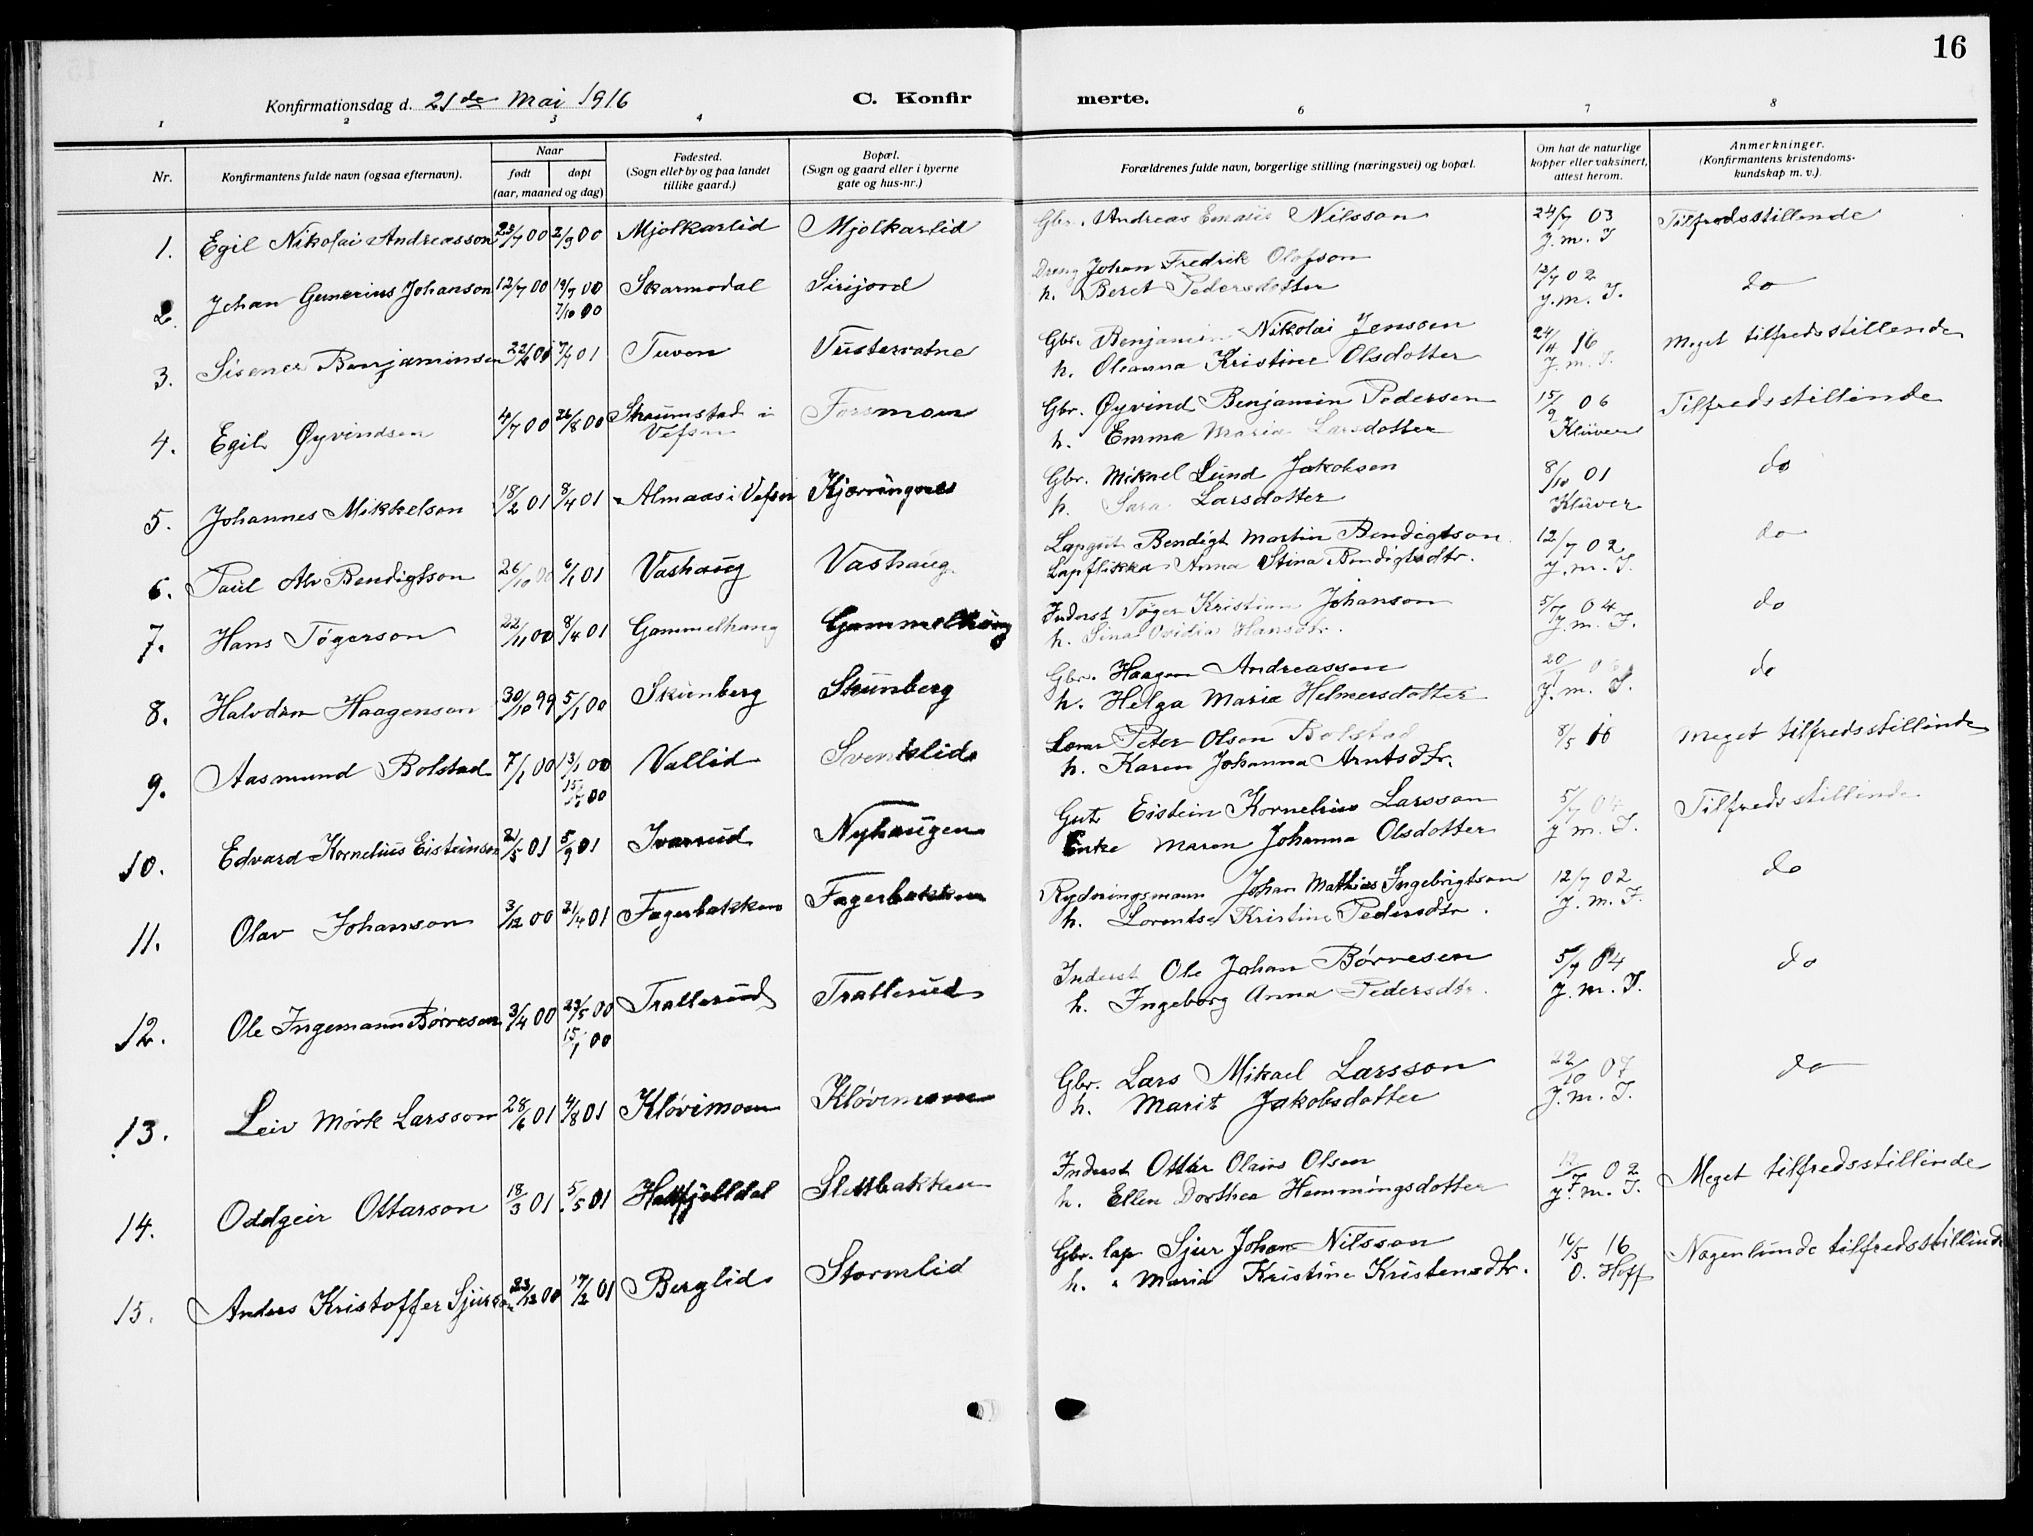 16
Konfirmationsdag d. 21de Mai 1916
C. Konfirmerte.
1 2 3 4 6 7 8
Nr.
Konfirmantens fulde navn (ogsaa efternavn).
Naar
født
døpt
(aar, maaned og dag)
Fødested.
(Sogn eller by og paa landet
tillike gaard.)
Bopæl.
(Sogn og gaard eller i byerne
gate og hus-nr.)
Forældrenes fulde navn, borgerlige stilling (næringsvei) og bopæl.
Om hat de naturlige
kopper eller vaksinert,
attest herom.
Anmerkninger.
(Konfirmantens kristendoms-
kundskap m. v.).
1. Egil Nikolai Andreasson 23/7 00 2/9 00 Mjolkarlid Mjolkarlid Gbr. Andreas Nilsson 24/7 03 Tilfredsstillende
J. m. I
2. Johan Johanson 12/7 00 19/7 00 Skarmodal Sirijord Dreng Johan Fredrik Olofson 12/7 02 do
7/10 00 h. Beret Pedersdotter J. m. I.
3. Sisener Benjaminsen 7/7 01 Tuven Tustervatne Gbr. Benjamin Nikolai Jenssen 24/4 16 Meget tilfredsstillende
h. Oleanna Kristine Olsdotter J. m. I.
4. Egil Øyvindsen 4/7 00 26/8 00 i Forsmoen Gbr. Øyvind Benjamin Pedersen 15/9 06 Tilfredsstillende
Vefsn h. Emma Maria Larsdotter Klüver
5. Johannes Mikkelson 18/2 01 8/4 01 Almaas i Vefsn Kjærringnes Gbr. Mikael Lund Jakobsen 8/10 01 do
h. Sara Larsdotter Klüver
6. Paul Alv Bendigtson 26/10 00 6/1 01 Vashaug Vashaug Lapgut Bendigt Martin Bendigtson 12/7 02 do
Lapflikka Anna Stina Bendigtsdtr. J. m. I.
7. Hans Tøgerson 22/11 00 8/4 01 Gammelhaug Gammelhaug Inderst Tøger Kristian Johanson 5/7 04 do
h. Sina Ovidia Hansdtr. J. m. I.
8. Halvdan Haagenson 30/10 99 5/1 00 Skunberg Skunberg Gbr. Haagen Andreassen do
h. Helga Maria Helmersdotter J. m. I.
9. Aasmund Bolstad 7/1 00 13/1 00 Vallid Svenklid Peter Olsen Bolstad 8/5 16 Meget tilfredsstillende
00 h. Karen Johanna Arntsdtr.
10. Edvard Kornelius Eisteinson 2/5 01 5/9 01 Ivarrud Nyhaugen Gut Eistein Kornelius Larsson 5/7 04 Tilfredsstillende
Enke Maren Johanna Olsdotter J. m. I.
11. Olav Johanson 3/12 00 21/4 01 Fagerbakken Fagerbakken Rydningsmann Johan Mathias Ingebrigtson 12/7 02 do
h. Lorentse Kristine Pedersdtr. J. m. I.
12. Ole Ingemann Børresen 3/4 00 23/5 00 Trallerud Trallerud Inderst Ole Johan Børresen 5/7 04 do
00 h. Ingeborg Anna Pedersdtr. J. m. I.
13. Leiv Mörk Larsson 28/6 01 4/8 01 Kløvimoen Kløvimoen Gbr. Lars Mikael Larsson 22/10 07 do
h. Marit Jakobsdotter J. m. I.
14. Oddgeir Ottarson 18/3 01 5/5 01 Hatfjelldal Slettbakken Inderst Ottar Olaus Olsen 12/7 02 Meget tilfredsstillende
h. Ellen Dorthea Hemmingsdotter J. m. I.
15. Anders Kristoffer Sjurson 23/12 00 17/2 01 Berglid Stormlid Gbr. lap Sjur Johan Nilsson 16/5 16 Nogenlunde tilfredsstillende
h. " Maria Kristine Kristensdtr. O. Hoff